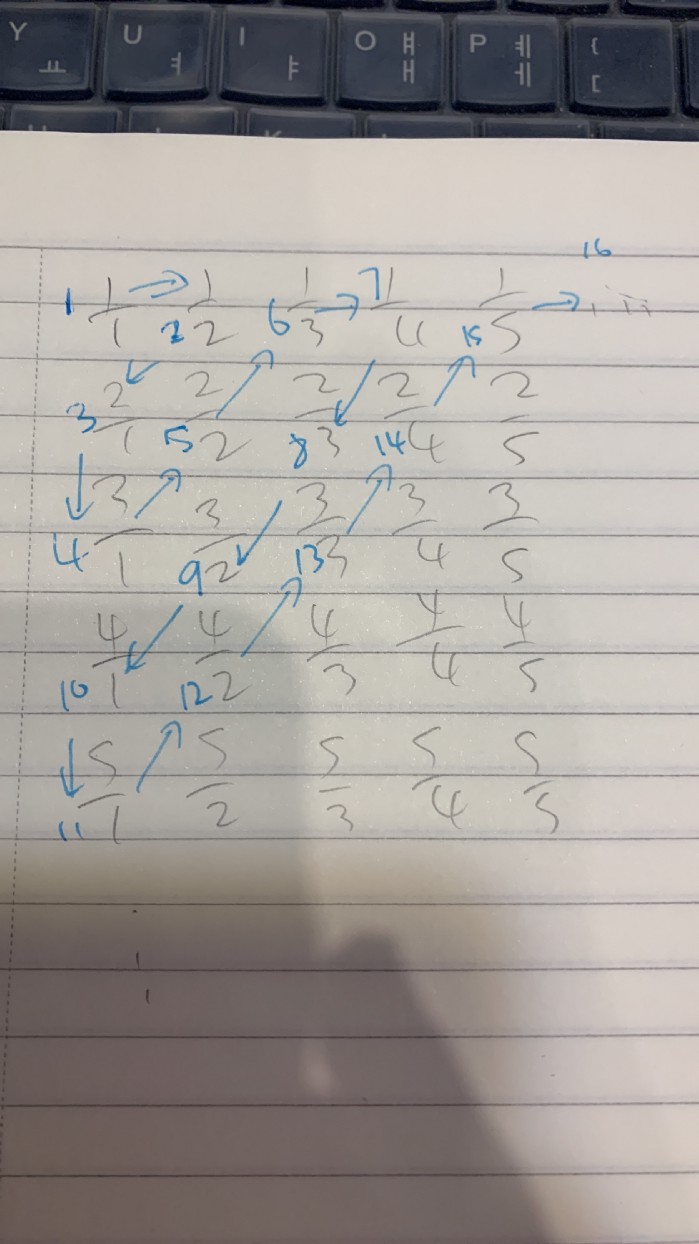 Y ㅛ U ㅕ I ㅑ O ㅒ ㅐ P ㅖ ㅔ { [
16
1 1/1 → 2 1/2 6 1/3 → 7 1/4 15 1/5 →
3 2/1 5 2/2 8 2/3 14 2/4 2/5
4 3/1 9 3/2 13 3/3 3/4 3/5
10 4/1 12 4/2 4/3 4/4 4/5
11 5/1 5/2 5/3 5/4 5/5